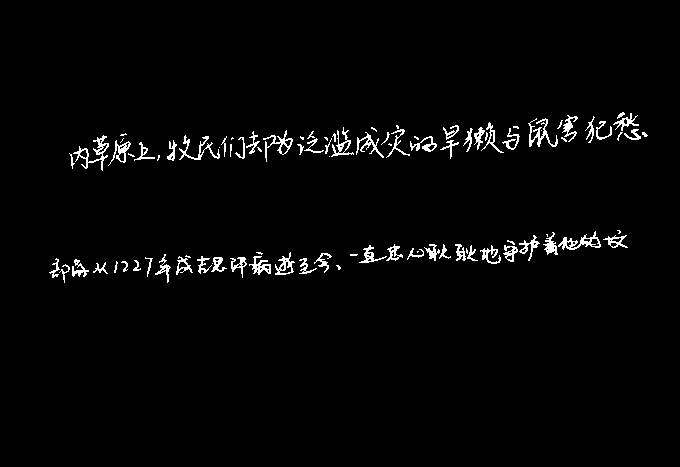 内草原上,牧民们却为泛滥成灾的旱獭与鼠害犯愁、
部落从1227年成吉思汗病逝至今、一直忠心耿耿地守护着他的坟